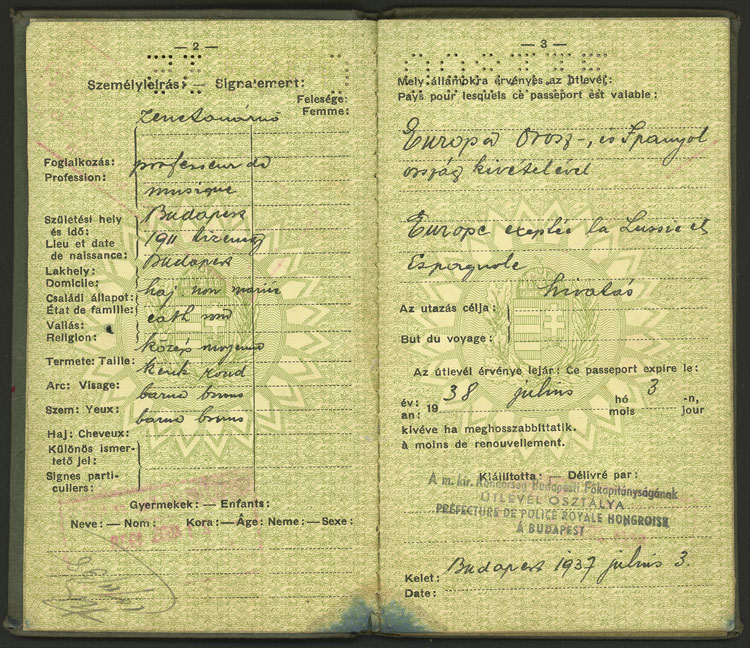 — 2 —
Személyleírás: — Signalement:
Felesége:
Femme:
Zenetanárnő
Foglalkozás:
Profession:
professeur de
musique
Születési hely
és idő:
Lieu et date
de naissance:
Budapest
1911
Lakhely:
Domicile:
Budapest
Családi állapot:
État de famille:
haj non mariée
Vallás:
Religion:
cath rom
Termete: Taille:
közép moyenne
Arc: Visage:
kerek rond
Szem: Yeux:
barna bruns
Haj: Cheveux:
barna bruns
Különös ismer-
tető jel:
Signes parti-
culiers:
Gyermekek: — Enfants:
Neve: — Nom: Kora: — Âge: Neme: — Sexe:
— 3 —
Mely államokra érvényes az útlevél:
Pays pour lesquels ce passeport est valable:
Európa Orosz-, és Spanyol
ország kivételével
Europe exeptée la Russie et
Espagnole
hivatás
Az utazás célja:
But du voyage:
Az útlevél érvénye lejár: Ce passeport expire le:
év: an: 1938 július hó mois 3 -n, jour
kivéve ha meghosszabbíttatik.
à moins de renouvellement.
Kiállította: — Délivré par:
A m. kir. Rendőrség Budapesti Főkapitányságának
ÚTLEVÉL OSZTÁLYA
PRÉFECTURE DE POLICE ROYALE HONGROISE
À BUDAPEST
Kelet:
Date:
Budapest 1937 július 3.